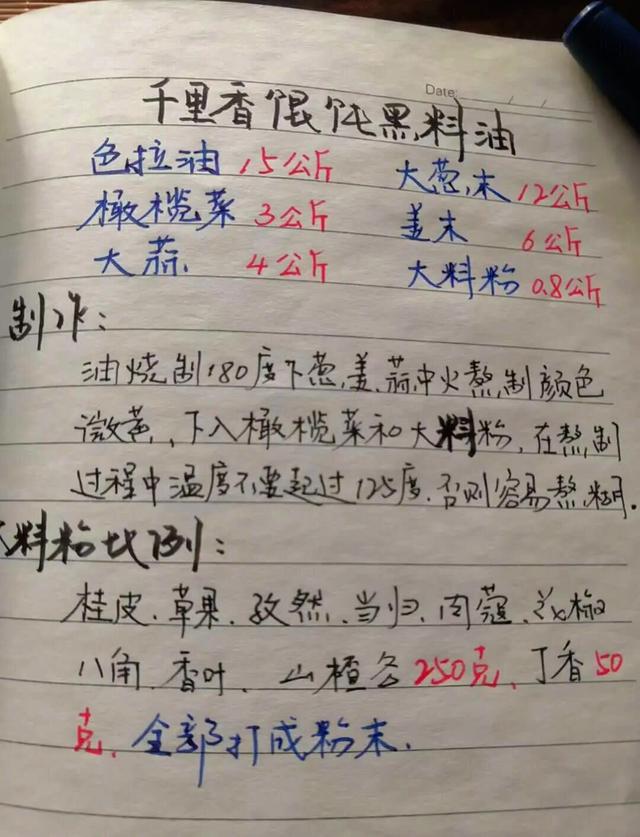 Date:
千里香馄饨黑料油
色拉油 15公斤 大葱末 12公斤
橄榄菜 3公斤 姜末 6公斤
大蒜. 4公斤 大料粉 0.8公斤
制作:
油烧制180度下葱,姜,蒜中火熬制颜色
微黄,下入橄榄菜和大料粉,在熬制
过程中温度不要起过125度.否则容易熬糊.
大料粉比例:
桂皮.草果.孜然.当归.肉蔻.花椒
八角.香叶、山楂各250克、丁香50
克.全部打成粉末.